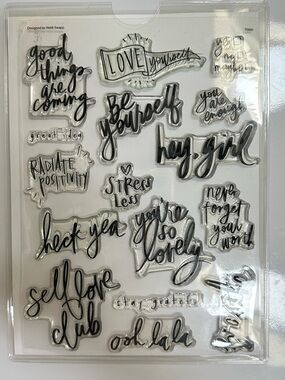 Designed by Heidi Swapp
good
things
are
coming
LOVE yourself
Be
yourself
you
are
enough
great idea
hey girl
RADIATE
POSITIVITY
STRESS
less
never
forget
your
worth
heck yea
you're
so
lovely
self love
club
stay grateful
ooh la la